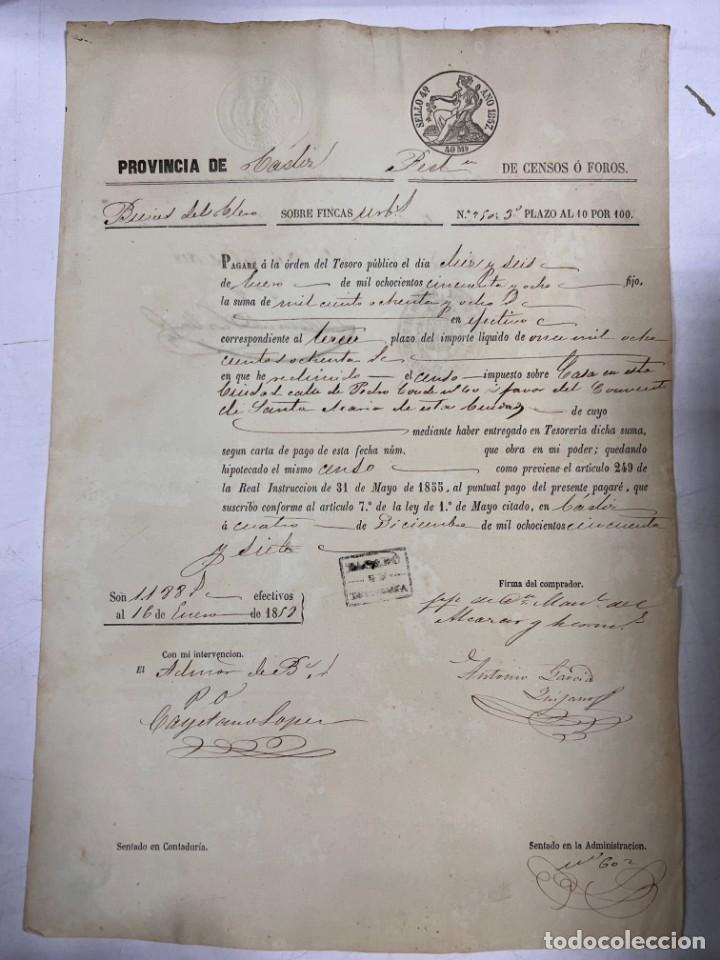 SELLO 4º AÑO 1857.
40 Ms
PROVINCIA DE Cádiz DE CENSOS Ó FOROS.
Bienes del Clero SOBRE FINCAS Urbs N.º 3º PLAZO AL 10 POR 100.
PAGARÉ á la órden del Tesoro público el dia diez y seis
de Enero de mil ochocientos cincuenta y ocho fijo,
la suma de mil ciento ochenta y ocho
en efectivo
correspondiente al tercer plazo del importe líquido de once mil ocho
cientos ochenta
en que he redimido el censo impuesto sobre Casa en esta
Ciudad calle de Pedro Conde favor del Convento
de Santa Maria de esta Ciudad de cuyo
mediante haber entregado en Tesorería dicha suma,
segun carta de pago de esta fecha núm. que obra en mi poder; quedando
hipotecado el mismo censo como previene el artículo 249 de
la Real Instruccion de 31 de Mayo de 1855, al puntual pago del presente pagaré, que
suscribo conforme al artículo 7.º de la ley de 1.º de Mayo citado, en Cádiz
á cuatro de Diciembre de mil ochocientos cincuenta
y siete
Son 1188 efectivos
al 16 de Enero de 185
Firma del comprador.
de Man.l del
Alcazar y
Con mi intervencion.
El Admor de
P O
Cayetano Lopez
Antonio Garcia
Quijano
Sentado en Contaduría.
Sentado en la Administracion.
nº 602
todocoleccion.net